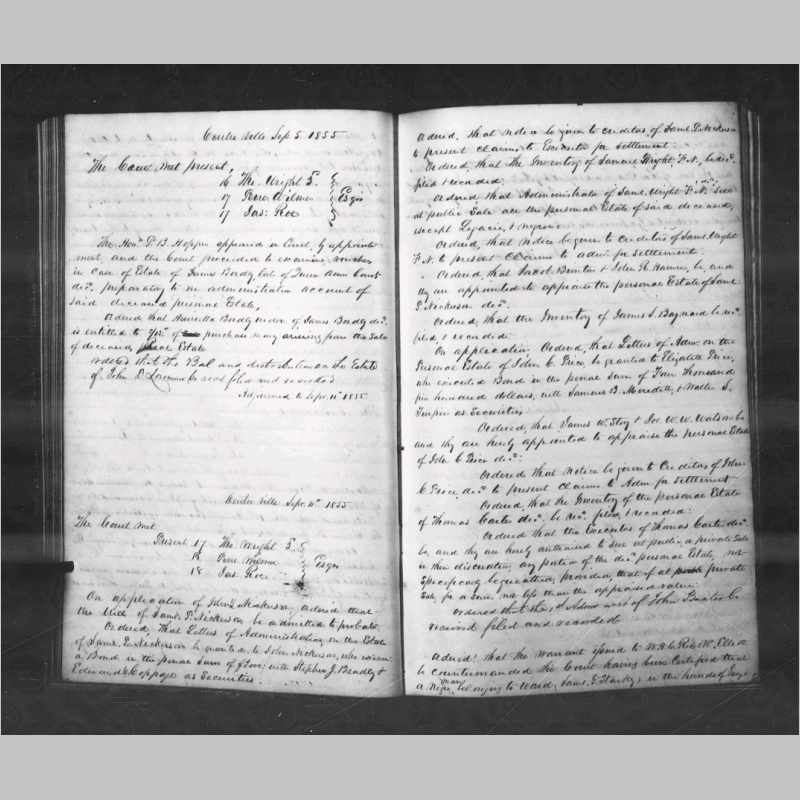 Centre ville Sep 5. 1855
The Court met present,
16 Tho. Wright 3.
17 Pere Wilmer Esqrs
17 Jas: Roe
The Honl. P. B. Hopper appeared in Court, by appoint-
ment, and the Court proceeded to examine witnesses
in case of Estate of James Bordly late of Queen Anns County
decd. preparatory to an administration account of
said deceased personal Estate,
Ordered that Henrietta Bordly widow of James Bordly decd.
is entitled to of purchase money arising from the Sale
of deceased, Real Estate
ordered that the Bal and distribution on the Estate
of John D. was filed and recorded
Adjourned to Sepr. 11th 1855
Centre ville Sepr. 11th 1855
The Court met
Present 17 Tho Wright 3.
18 Pere Wilmer Esqrs
18 Jas. Roe
On application of John Nickerson, ordered that
the Will of Saml. P. Nickerson be admitted to probate
Ordered, That Letters of Administration on the Estate
of Saml. P. Nickerson be granted to John Nickerson, who executed
a Bond in the penal Sum of with Stephen J. Bradley &
Edward Coppage as Securities.
Ordered, that notice be given to creditors, of Saml. P. Nickerson
to present claims to Executor for settlement.
Ordered, that the Inventory of Samuel Wright, F.N., be recd.
filed & recorded.
Ordered that Administrator of Saml. Wright F.N. Sell
at public Sale all the personal Estate of said deceased,
except Legacies, & negroes
Ordered, that notice be given to creditors of Saml. Wright
F.N. to present Claims to admr. for settlement.
Ordered, that Jacob & John H. be, and
they are appointed to appraise the personal Estate of Saml
P. Nickerson decd.
Ordered, that the Inventory of James S. Baynard be recd.
filed, & recorded.
On application, Ordered, that Letters of Admr. on the
Personal Estate of John C. Price, be granted to Elizabeth Price,
who executed Bond in the penal sum of Four thousand
five hundred dollars, with Samuel B. Meredith, & Walter J.
as Securities
Ordered, that James W. & Jos. W. W. Watson be
and they are hereby appointed to appraise the personal Estate
of John C Price decd:
Ordered that notice be given to Creditors of John
C Price, decd. to present claims to Adm for settlement
Ordered, that the Inventory of the personal Estate
of Thomas Carter decd. be recd. filed, & recorded.
Ordered that the Executor of Thomas Carter decd.
be, and they are hereby authorized to sell at public or private Sale
in their discretion, any portion of the decd. personal Estate, not
Specifically bequeathed, provided, that if at private
Sale for a Sum not less than the appraised value.
ordered that the 1st Admn acct of John Baxter be
received filed and recorded
Ordered that the warrant issued to W. H. D. W. Elliott
be countermanded the Court having been Certified that
a Negro man, belonging to Ward, Saml. E. Starkey, in the hands of